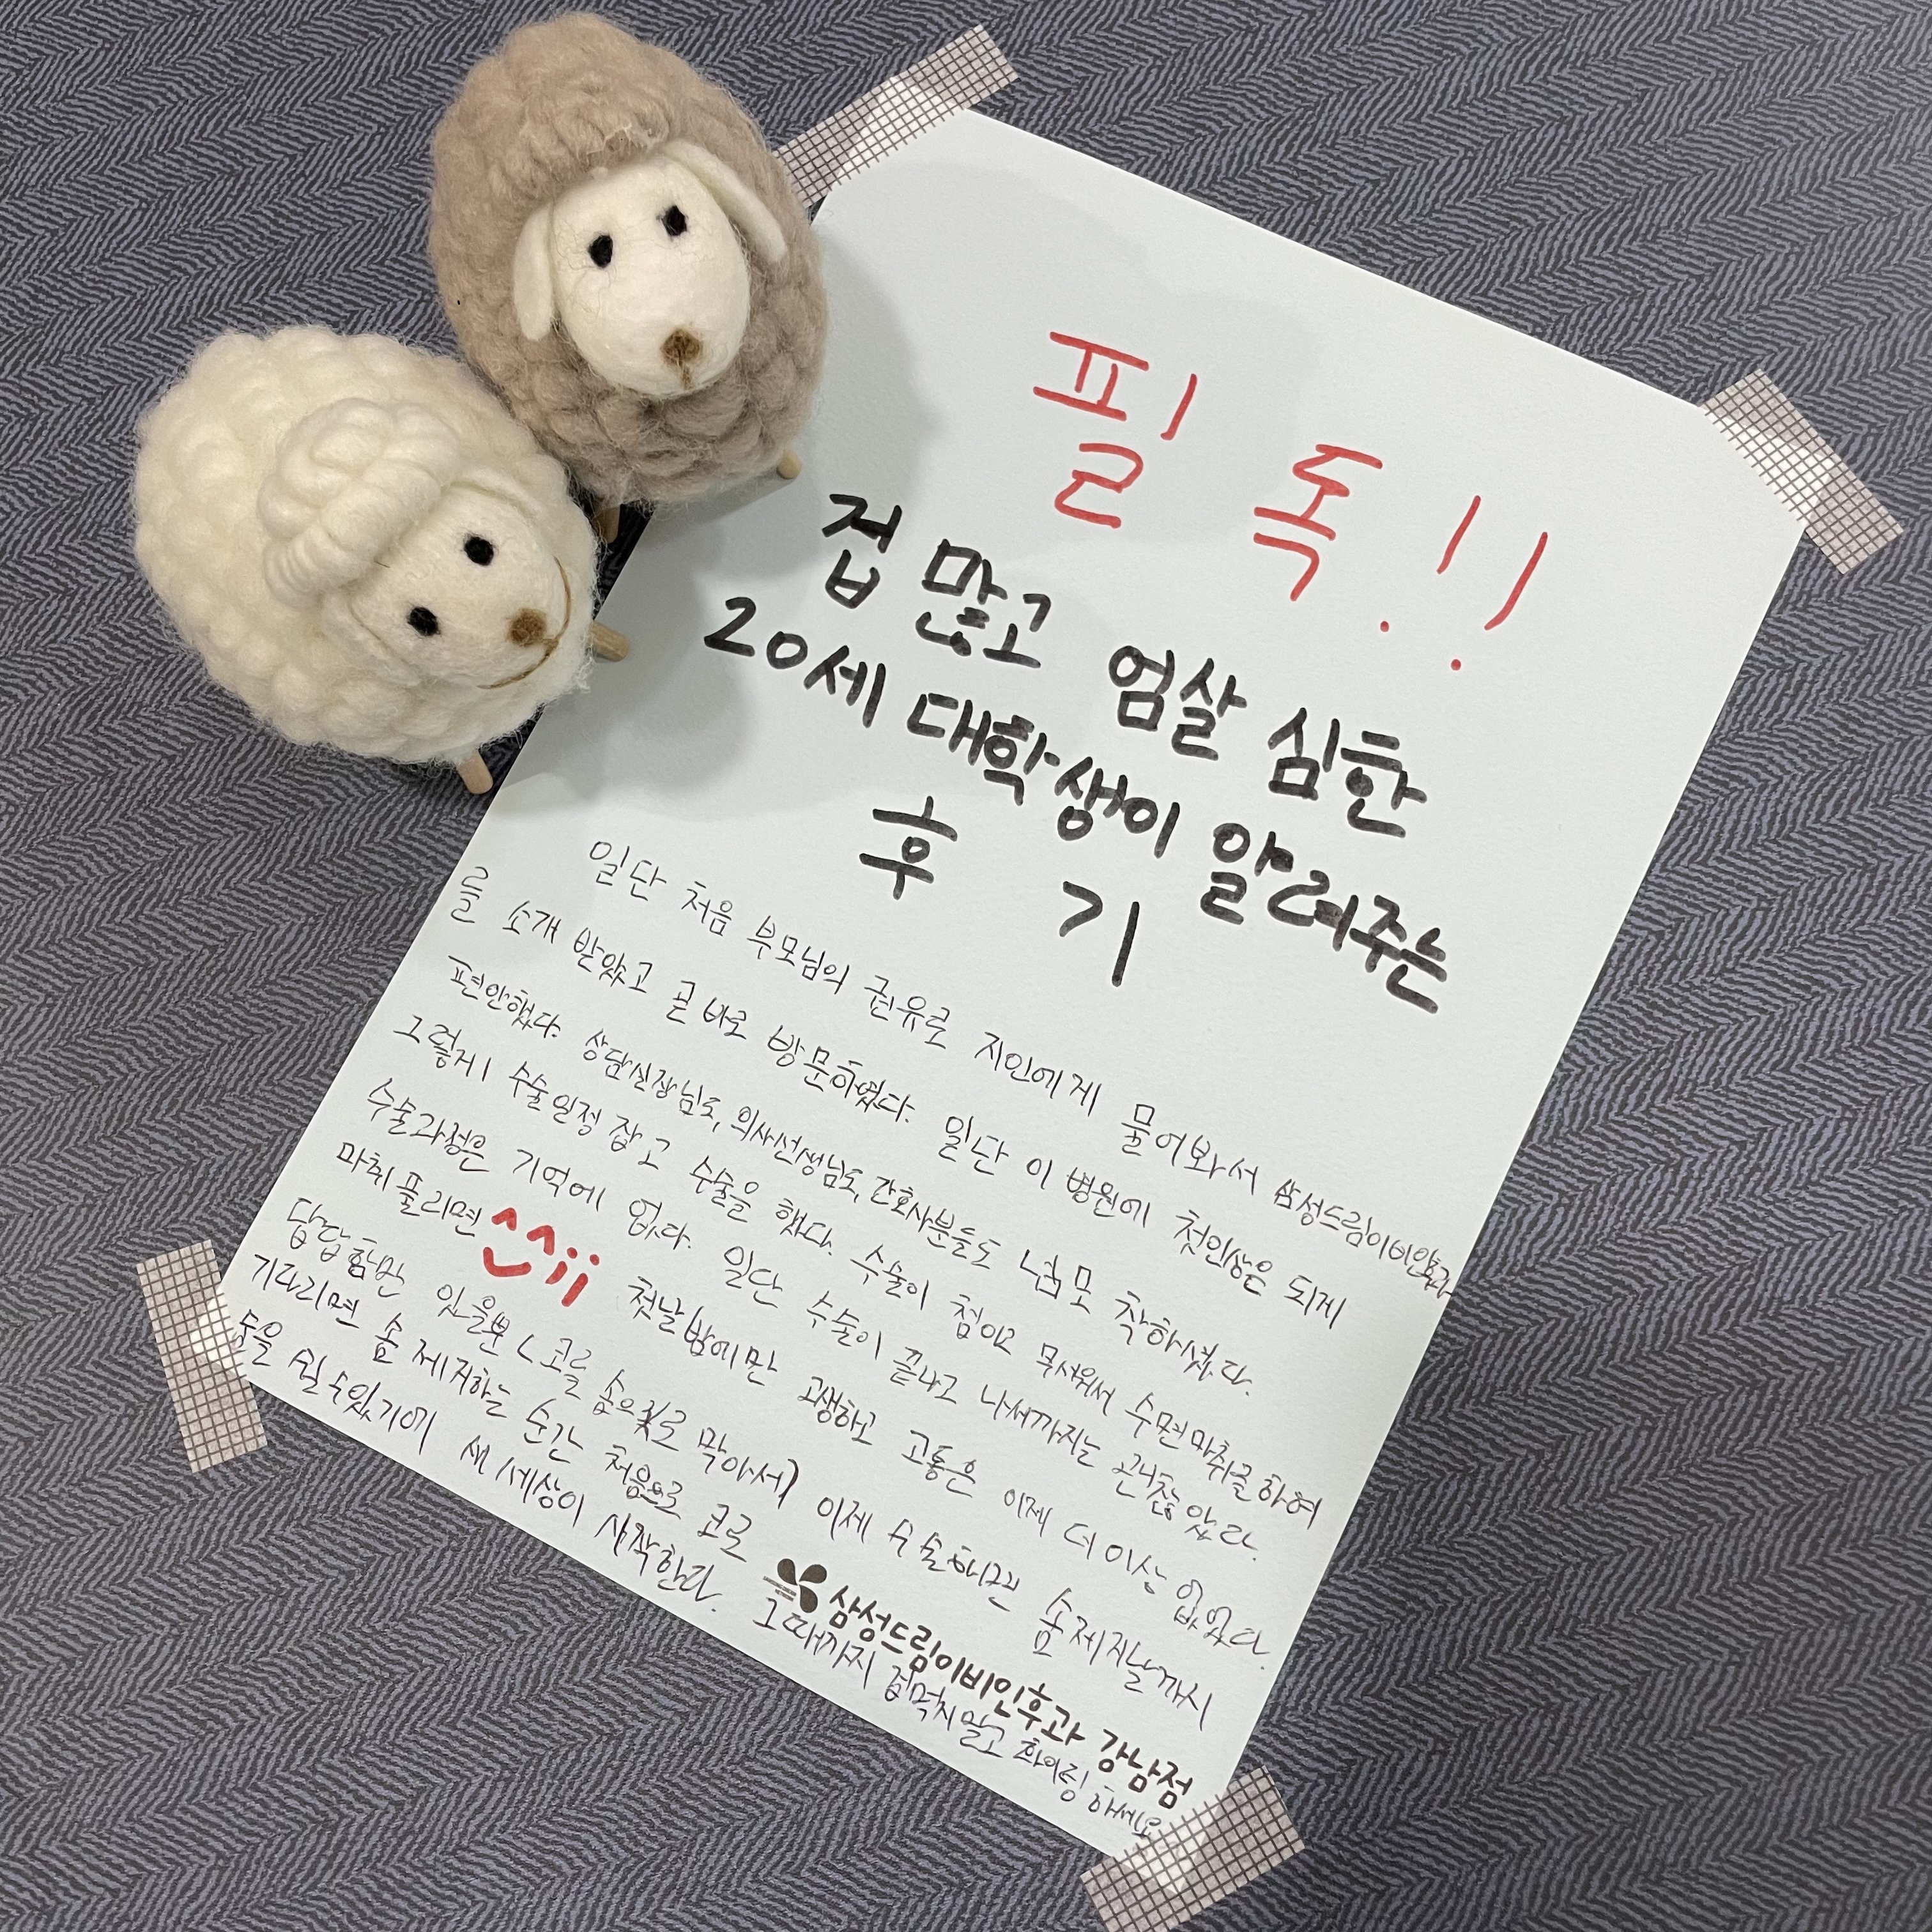 필 독!!
겁 많고 엄살 심한
20세 대학생이 알려주는
후 기
일단 처음 부모님의 권유로 지인에게 물어봐서 삼성드림이비인후과
를 소개 받았고 곧 바로 방문하였다. 일단 이 병원에 첫인상은 되게
편안했다. 상담실장님도, 의사선생님도, 간호사분들도 너무 착하셨다.
그렇게 수술일정 잡고 수술을 했다. 수술이 첨이고 무서워서 수면마취를 하여
수술과정은 기억에 없다. 일단 수술이 끝나고 나서까지는 괜찮았다.
마취 풀리면 ^^ii 첫날밤에만 고생하고 고통은 이제 더 이상 없었다.
답답함만 있을뿐 (코를 솜으로 막아서) 이제 수술하고 솜제거날까지
기다리면 솜 제거하는 순간 처음으로 코로
숨을 쉴 수 있기에 새 세상이 시작한다. 그때까지 겁먹지말고 화이팅 하세요
삼성드림이비인후과 강남점